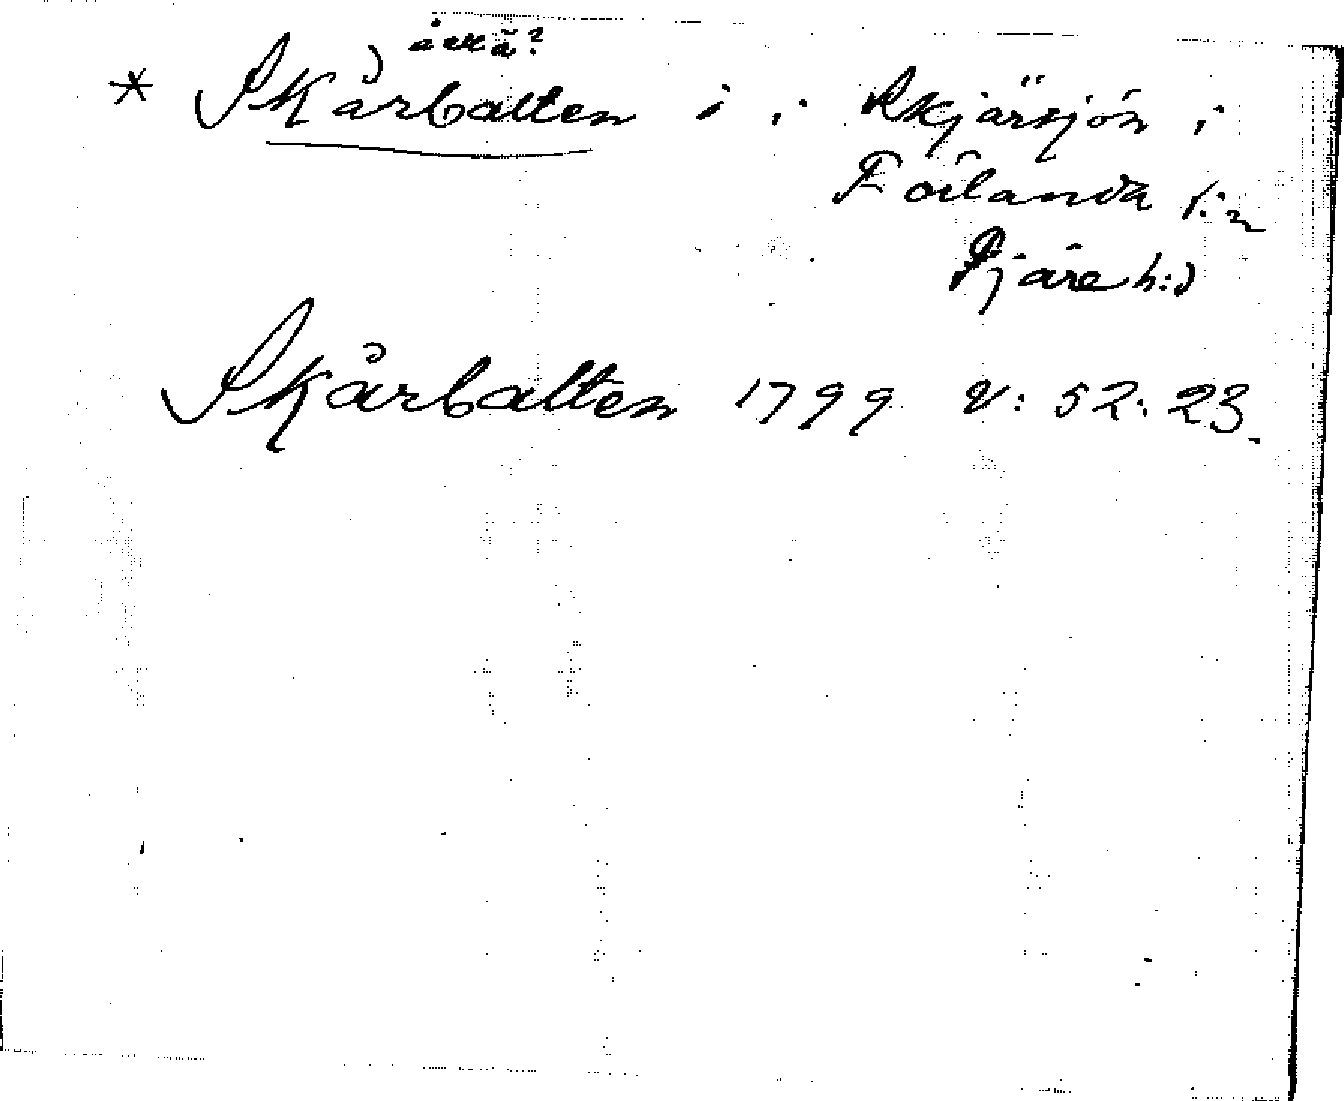 å ell ä?
* Skårbalten i i Skjärsjön i
Förlanda s:n
Fjäre h:d
Skårbalten 1799 V: 52: 23.